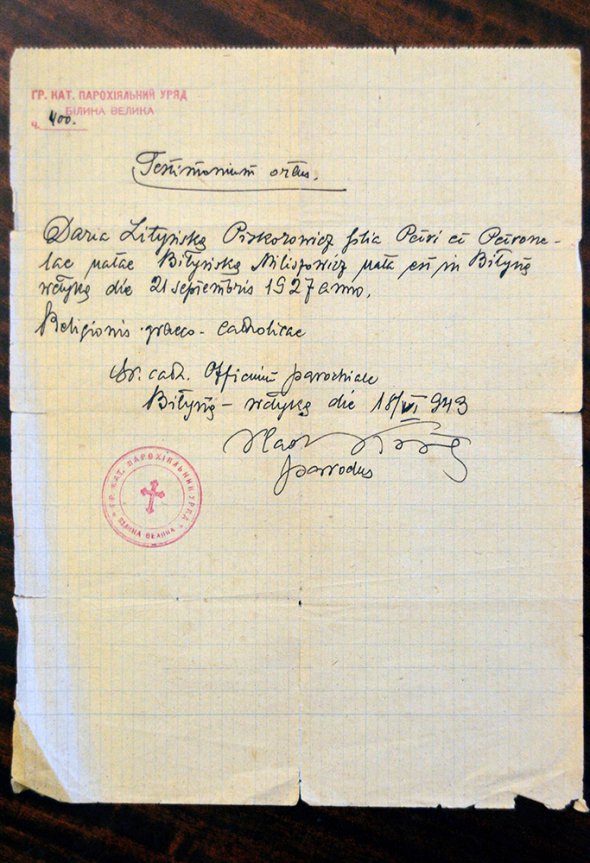 ГР. КАТ. ПАРОХІЯЛЬНИЙ УРЯД
БІЛИНА ВЕЛИКА
ч. 400.
Testimonium ortus.
Daria Lityńska Piskozowicz filia Petri et Petrone-
lae natae Bilyńska Nilisowicz nata est in Bilyna
die 21 septembris 1927 anno.
Religionis graeco-catholicae
Gr. cath. Officium parochiale
die 18/VI 943
parochus
ГР. КАТ. ПАРОХІЯЛЬНИЙ УРЯД
БІЛИНА ВЕЛИКА